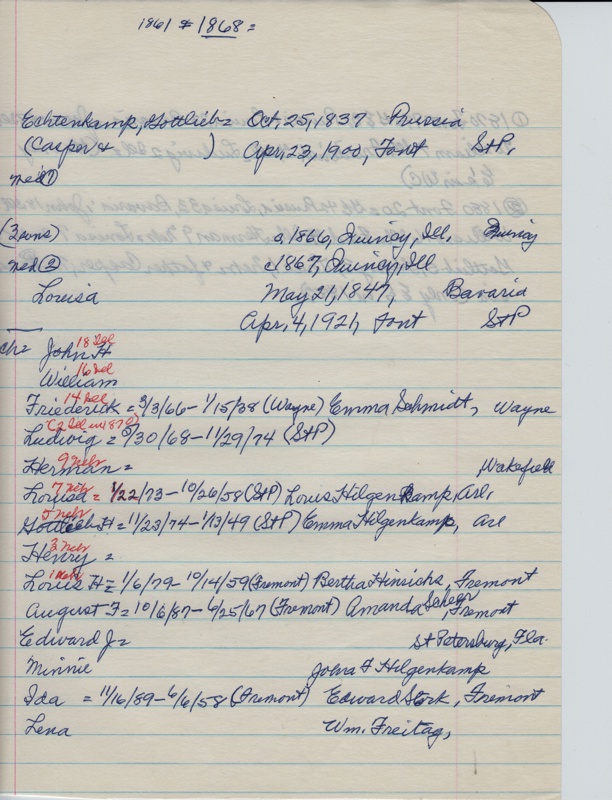 1861 & 1868 =
Echtenkamp, Gottlieb = Oct, 25, 1837 Prussia
(Casper & ) Apr, 23, 1900, Font St P,
md ①
(3 sons) a, 1866, Quincy, Ill, Quincy
md ② c1867, Quincy, Ill
Louisa May 21, 1847, Bavaria
Apr, 4, 1921, Font St P
Ch =
18 Ill
John H
16 Ill
William
14 Ill
Friederick = 3/3/66 - 1/15/38 (Wayne) Emma Schmidt, Wayne
(2 Ill in 1870)
Ludwig = /30/68 - 11/29/74 (St P)
9 Neb
Herman = Wakefield
7 Neb
Louisa = 1/22/73 - 10/26/58 (St P) Louis Hilgenkamp, Arl,
5 Neb
Gottlieb H = 11/23/74 - 1/13/49 (St P) Emma Hilgenkamp, Arl
3 Neb
Henry =
1 Neb
Louis H = 1/6/79 - 10/14/59 (Fremont) Bertha Hinrichs, Fremont
August F = 10/6/87 - 6/25/67 (Fremont) Amanda Fremont
Edward J = St Petersburg, Fla.
Minnie John F Hilgenkamp
Ida = 11/16/89 - 6/6/58 (Fremont) Edward Stork, Fremont
Lena Wm. Freitag,